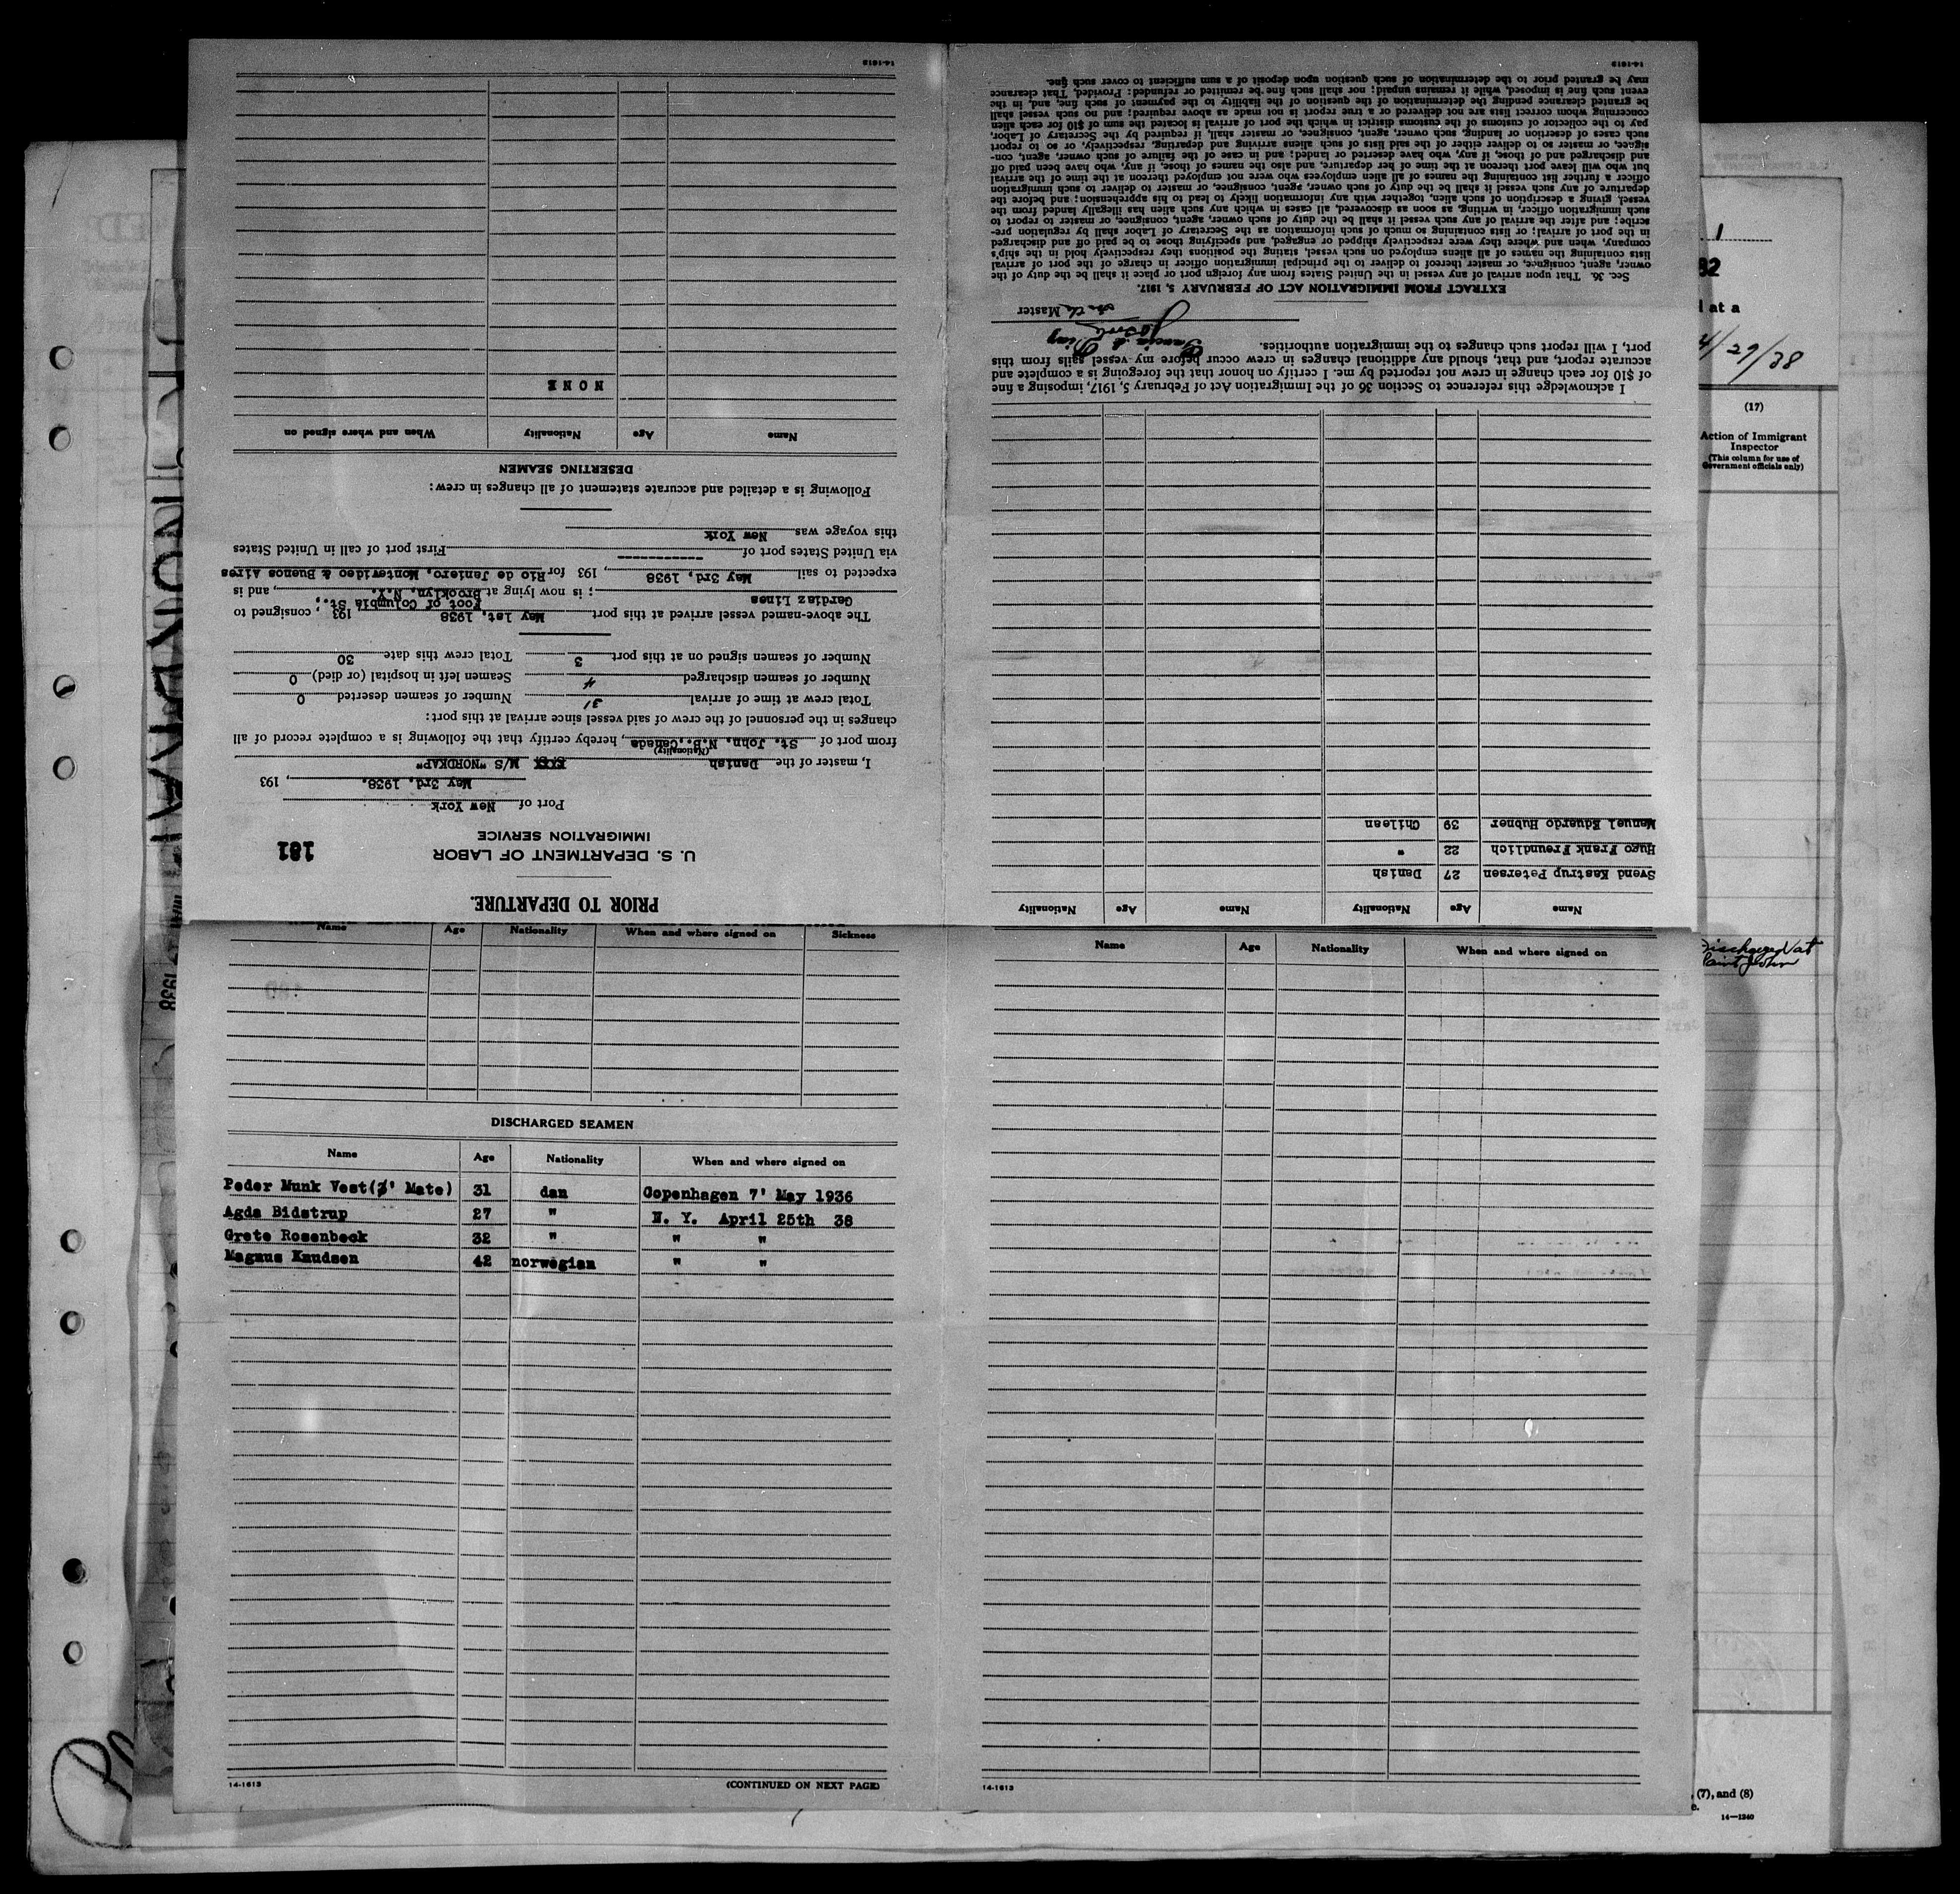 PRIOR TO DEPARTURE.
U. S. DEPARTMENT OF LABOR
IMMIGRATION SERVICE
181
Port of New York
May 3rd, 1938. , 193
I, master of the Danish M/S "NORDKAP"
(Nationality)
from port of St. John, N.B., Canada , hereby certify that the following is a complete record of all
changes in the personnel of the crew of said vessel since arrival at this port:
Total crew at time of arrival 31 Number of seamen deserted 0
Number of seamen discharged 4 Seamen left in hospital (or died) 0
Number of seamen signed on at this port 3 Total crew this date 30
The above-named vessel arrived at this port May 1st, 1938 193 ; consigned to
Gardiaz Lines ; is now lying at Foot of Columbia St., Brooklyn, N.Y. , and is
expected to sail May 3rd, 1938 , 193 for Rio de Janiero, Montevideo & Buenos Aires
via United States port of ----------- First port of call in United States
this voyage was New York
Following is a detailed and accurate statement of all changes in crew:
DESERTING SEAMEN
Name Age Nationality When and where signed on
NONE
14-1613
Name Age Nationality When and where signed on Sickness
DISCHARGED SEAMEN
Name Age Nationality When and where signed on
Peder Munk Vest(3' Mate) 31 dan Copenhagen 7' May 1936
Agda Bidstrup 27 " N. Y. April 25th 38
Grete Rosenbeck 32 " " "
Magnus Knudsen 42 norwegian " "
14-1613 (CONTINUED ON NEXT PAGE)
Name Age Nationality When and where signed on
14-1613
Name Age Nationality Name Age Nationality
Svend Kastrup Petersen 27 Danish
Hugo Frank Freundlich 22 "
Manuel Eduardo Hubner 39 Chilean
I acknowledge this reference to Section 36 of the Immigration Act of February 5, 1917, imposing a fine
of $10 for each change in crew not reported by me. I certify on honor that the foregoing is a complete and
accurate report, and that, should any additional changes in crew occur before my vessel sails from this
port, I will report such changes to the immigration authorities.
Garcia & Diaz
Master
EXTRACT FROM IMMIGRATION ACT OF FEBRUARY 5, 1917.
Sec. 36. That upon arrival of any vessel in the United States from any foreign port or place it shall be the duty of the
owner, agent, consignee, or master thereof to deliver to the principal immigration officer in charge of the port of arrival
lists containing the names of all aliens employed on such vessel, stating the positions they respectively hold in the ship's
company, when and where they were respectively shipped or engaged, and specifying those to be paid off and discharged
in the port of arrival; or lists containing so much of such information as the Secretary of Labor shall by regulation pre-
scribe; and after the arrival of any such vessel it shall be the duty of such owner, agent, consignee, or master to report to
such immigration officer, in writing, as soon as discovered, all cases in which any such alien has illegally landed from the
vessel, giving a description of such alien, together with any information likely to lead to his apprehension; and before the
departure of any such vessel it shall be the duty of such owner, agent, consignee, or master to deliver to such immigration
officer a further list containing the names of all alien employees who were not employed thereon at the time of the arrival
but who will leave port thereon at the time of her departure, and also the names of those, if any, who have been paid off
and discharged and of those, if any, who have deserted or landed; and in case of the failure of such owner, agent, con-
signee, or master so to deliver either of the said lists of such aliens arriving and departing, respectively, or so to report
such cases of desertion or landing, such owner, agent, consignee, or master shall, if required by the Secretary of Labor,
pay to the collector of customs of the customs district in which the port of arrival is located the sum of $10 for each alien
concerning whom correct lists are not delivered or a true report is not made as above required; and no such vessel shall
be granted clearance pending the determination of the question of the liability to the payment of such fine, and, in the
event such fine is imposed, while it remains unpaid; nor shall such fine be remitted or refunded: Provided, That clearance
may be granted prior to the determination of such question upon deposit of a sum sufficient to cover such fine.
14-1613
1
at a
4/29/38
(17)
Action of Immigrant
Inspector
(This column for use of
Government officials only)
Discharged at
Saint John
(7), and (8)
14-1240
1938